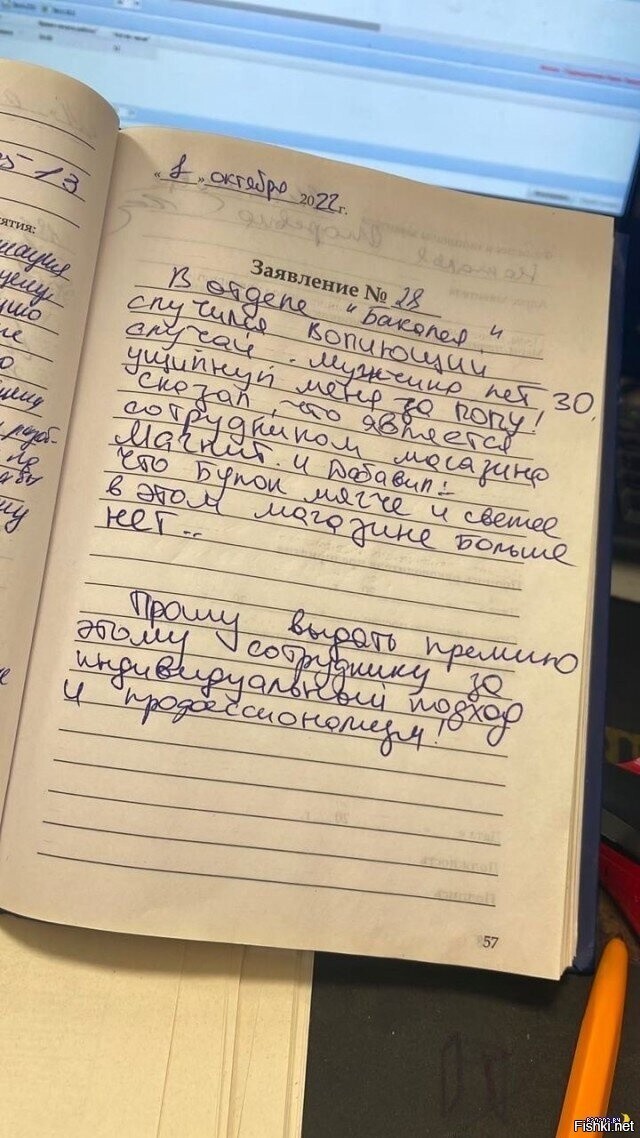 5-13
ятия:
"8" октября 2022 г.
Заявление № 28
В отделе "Бакалея"
случился вопиющий
случай. Мужчина лет 30,
ущипнул меня за попу!
сказал, что является
сотрудником магазина
Магнит. и Добавил:-
что Булок мягче и свежее
в этом магазине больше
нет...
Прошу выдать премию
этому сотруднику за
индивидуальный подход
и профессионализм!
57
Fishki.net